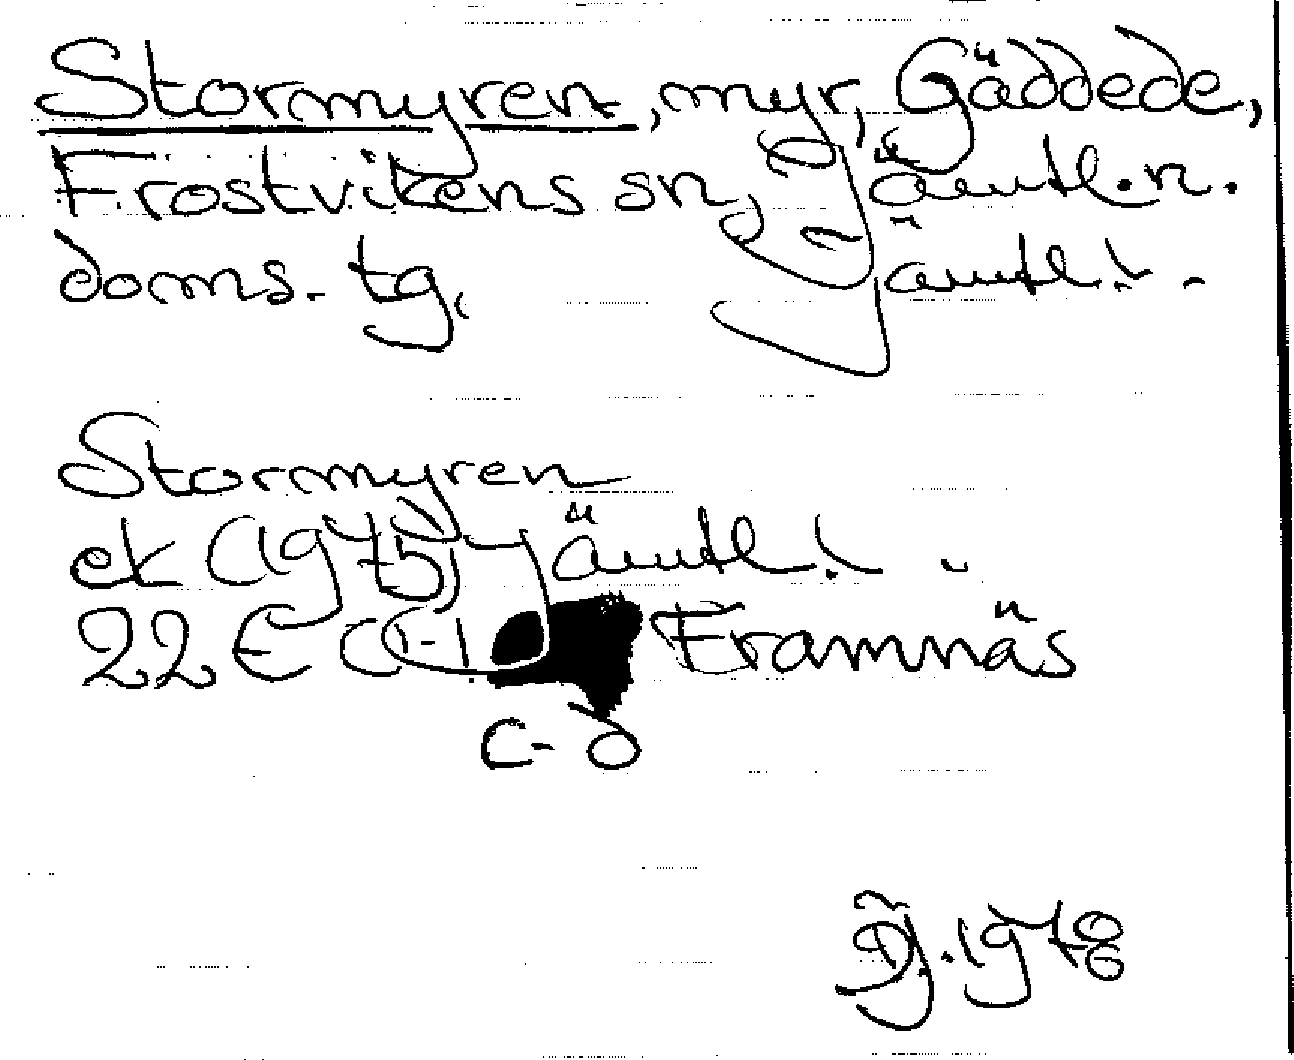 Stormyren, myr, Gäddede,
Frostvikens sn, Jämtl. n.
doms. tg. Jämtl. l.
Stormyren
ek (1975) Jämtl. l.
22 E c-d Framnäs
1978